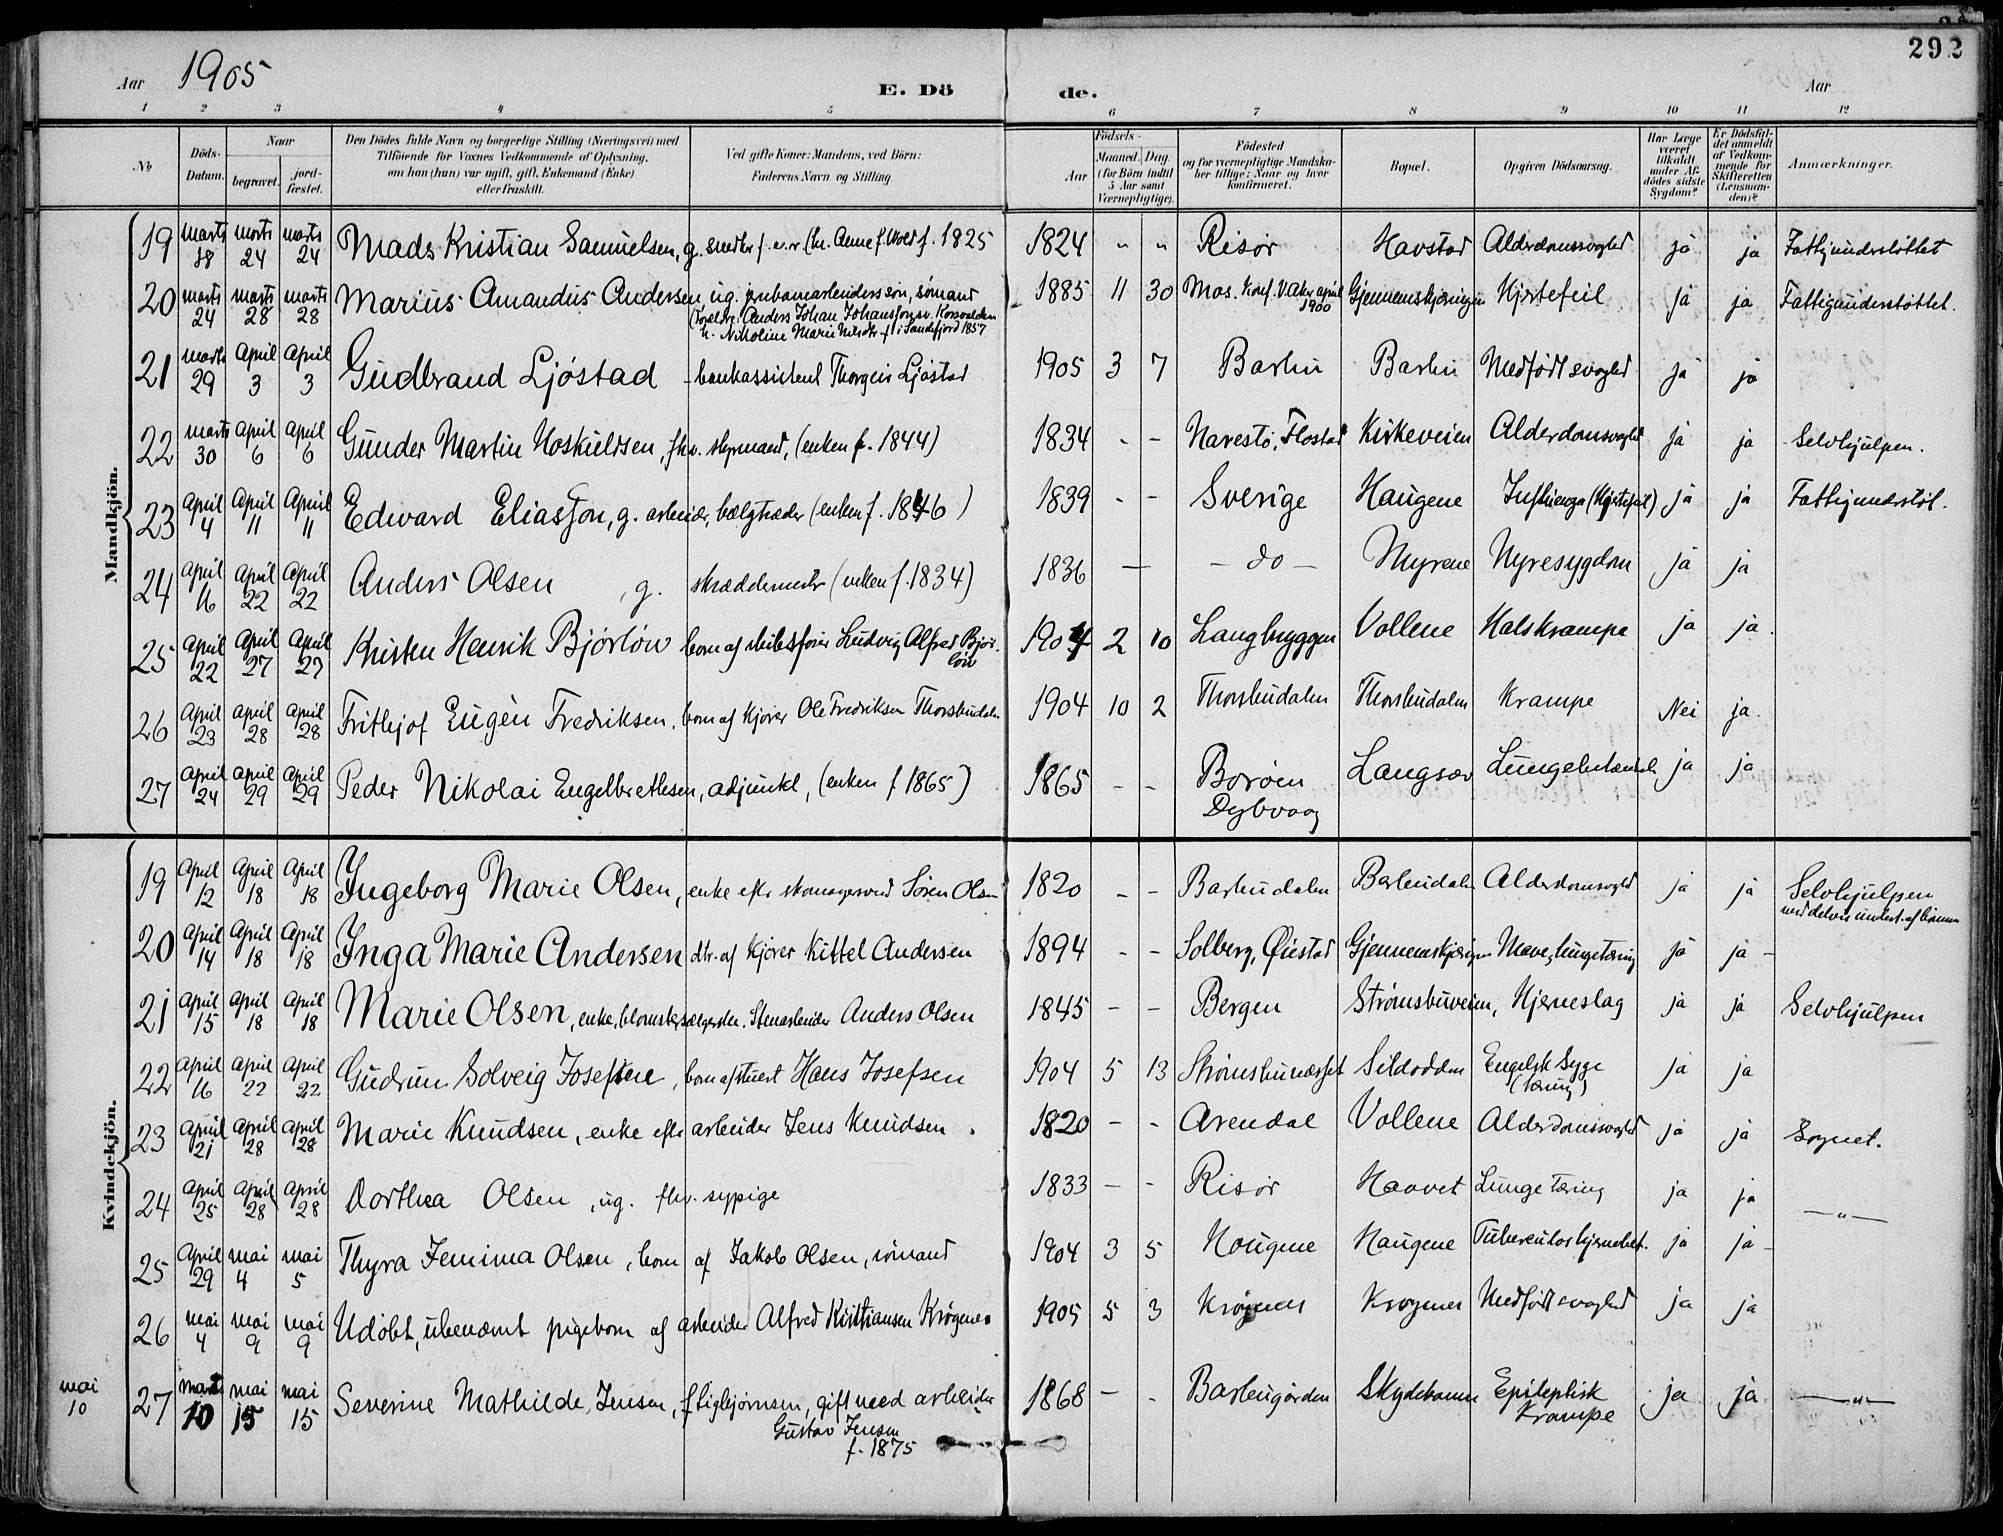 292
Aar 1905 E. Dö de. Aar
1 2 3 4 5 6 7 8 9 10 11 12
No
Döds-Datum.
Naar
begravet. jord-fæstet.
Den Dödes fulde Navn og borgerlige Stilling (Næringsvei) med
Tilföiende for Voxnes Vedkommende af Oplysning,
om han (hun) var ugift, gift, Enkemand (Enke)
eller fraskilt.
Ved gifte Koner: Mandens, ved Börn:
Faderens Navn og Stilling.
Födsels-
Aar Maaned. Dag.
(for Börn indtil
5 Aar samt
Værnepligtige).
Födested
og for værnepligtige Mandska-
ber tillige: Naar og hvor
konfirmeret.
Bopæl.
Opgiven Dödsaarsag.
Har Læge
været
tilkaldt
under Af-
dödes sidste
Sygdom?
Er Dödsfal-
det anmeldt
af Vedkom-
mende for
Skifteretten
(Lensman-
den)?
Anmærkninger.
Mandkjön.
19 marts 18 marts 24 marts 24 Mads Kristian Samuelsen, g. 1825 1824 " " Risør Havstad Alderdomssvaghed ja ja Fattigunderstøttet
20 marts 24 marts 28 marts 28 Marius Amandus Andersen, ug. jernbanearbeiders søn, sømand
(Foreldre: Anders Johan Johansson
h. Nikoline Marie Nilsdtr. f. i Sandefjord 1857
1885 11 30 Mos. Konf. april 1900 Gjennemskjæringen Hjertefeil ja ja Fattigunderstøttet.
21 marts 29 April 3 April 3 Gudbrand Ljøstad - bankassistent Thorgeir Ljøstad 1905 3 7 Barbu Barbu Medfødt svaghed ja ja
22 marts 30 April 6 April 6 Gunder Martin Hoskuldsen, fhv. styrmand, (enken f. 1844) 1834 - - Narestø, Flostad Kirkeveien Alderdomsvaghed ja ja Selvhjulpen.
23 April 4 April 11 April 11 Edward Eliasson, g. arbeider, bælgtræder (enken f. 1846) 1839 - - Sverige Haugene Influenza (Hjertefeil) ja ja Fattigunderstøt.
24 April 16 April 22 April 22 Anders Olsen, g. skræddermester (enken f. 1834) 1836 — - do - Myrene Nyresygdom ja ja
25 April 22 April 27 April 27 Kristen Henrik Bjørløw barn af skibsfører Ludvig Alfred Bjør-
løw 1904 2 10 Langbryggen Vollene Halskrampe ja ja.
26 April 23 April 28 April 28 Frithjof Eugèn Fredriksen. barn af kjører Ole Fredriksen Thorsbudalen 1904 10 2 Thorsbudalen Thorsbudalen Krampe Nei ja.
27 April 24 April 29 April 29 Peder Nikolai Engelbrethsen, adjunkt, (enken f. 1865) 1865 - - Borøen
Dybvaag Langsæv Lungebetændelse ja ja
Kvindekjön.
19 April 12 April 18 April 18 Ingeborg Marie Olsen, enke efter skomagersvend Søren Olsen 1820 - - Barbudalen Barbudalen Alderdomsvaghed ja ja Selvhjulpen
med delvis underst. af børnene
20 April 14 April 18 April 18 Inga Marie Andersen dtr. af kjører Kittel Andersen 1894 - - Solberg, Øiestad Gjennemskjæringen Mave, lungetæring ja ja -
21 April 15 April 18 April 18 Marie Olsen, enke, blomstersælgerske. Stenarbeider Anders Olsen 1845 - - Bergen Strømsbuveien, Hjerneslag ja ja Selvhjulpen
22 April 16 April 22 April 22 Gudrun Solveig Josefine, barn af stuert Hans Josefsen 1904 5 13 Strømsbuneset Sildodden Engelsk Syge
(tæring) ja ja
23 April 21 April 28 April 28 Marie Knudsen, enke efter arbeider Jens Knudsen. 1820 - - Arendal Vollene Alderdomssvaghed ja ja Sognet.
24 April 25 April 28 April 28 Dorthea Olsen, ug. fhv. sypige 1833 - - Risør Haavet Lungetæring ja ja —"—
25 April 29 mai 4 mai 5 Thyra Jemima Olsen, barn af Jakob Olsen, sømand 1904 3 5 Haugene Haugene Tuberculos hjernebet. ja ja -
26 mai 4 mai 9 mai 9 Udøbt, ubenævnt pigebarn af arbeider Alfred Kristiansen Krøgenes 1905 5 3 Krøgenes Krøgenes Medfødt svaghed ja ja
mai 10 27 10 mai 15 mai 15 Severine Mathilde Jensen, f. Sigbjørnsen, gift med arbeider
Gustav Jensen
f. 1875
1868 - - Barbugården Skydebanen Epileptisk
Krampe ja ja —"—